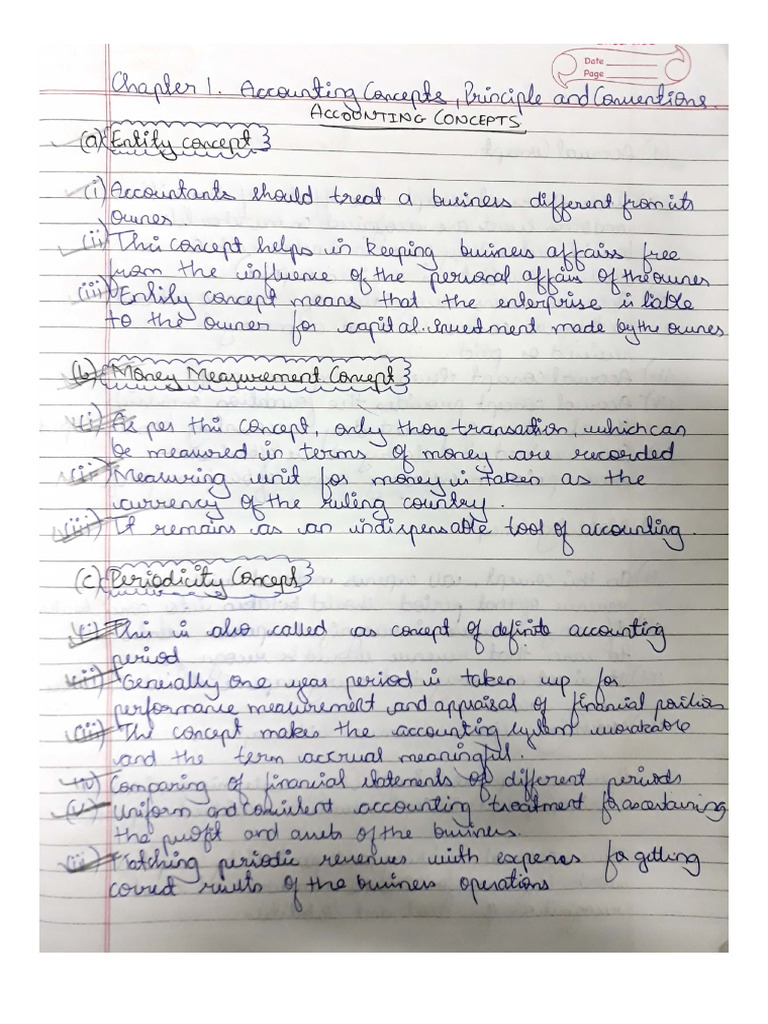 Date
Page
Chapter 1. Accounting Concepts, Principle and Conventions.
ACCOUNTING CONCEPTS
(a) Entity concept
(i) Accountants should treat a business different from its
owner.
(ii) This concept helps in keeping business affairs free
from the influence of the personal affairs of the owner
(iii) Entity concept means that the enterprise is liable
to the owner for capital investment made by the owner
(b) Money Measurement Concept
(i) As per this concept, only those transaction, which can
be measured in terms of money are recorded
(ii) Measuring unit for money is taken as the
currency of the ruling country.
(iii) It remains as an indispensable tool of accounting.
(c) Periodicity Concept
(i) This is also called as concept of definite accounting
period
(ii) Generially one year period is taken up for
performance measurement and appraisal of financial position
(iii) The concept makes the accounting system workable
and the term accrual meaningful.
(iv) Comparing of financial statements of different periods
(v) Uniform and consistent accounting treatment for ascertaining
the profit and assets of the business.
(vi) Matching periodic revenues with expenses for getting
correct results of the business operations